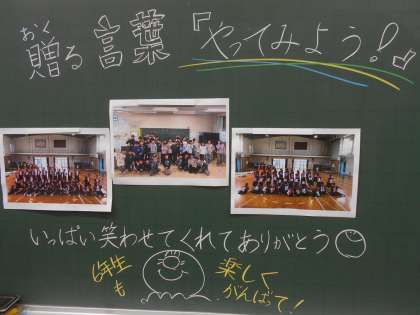 おく
贈る言葉『やってみよう!』
いっぱい笑わせてくれてありがとう
6年生も
楽しくがんばって!